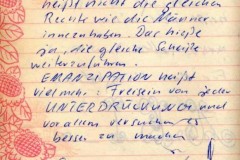 heißt nicht die gleichen
Rechte wie die Männer
innezuhaben. Das hieße
ja, die gleiche Scheiße
weiterzuführen.
EMANZIPATION heißt
vielmehr: Freisein von jeder
UNTERDRÜCKUNG und
vor allem versuchen es
besser zu machen